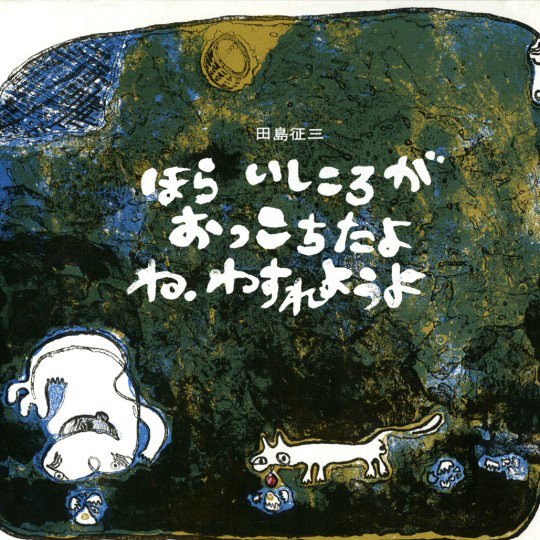 田島征三
ほら いしころが
おっこちたよ
ね。わすれようよ